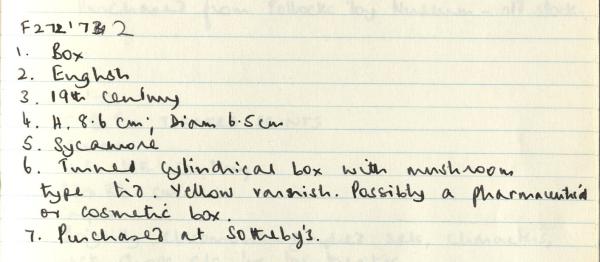 1. Box
2. English
3. 19th century
4. H. 8.6 cm; Diam 6.5 cm
5. Sycamore
6. Turned cylindrical box with mushroom
type lid yellow varnish. Possibly a pharmaceutical
or cosmetic box.
7. Purchased at Sotheby's.